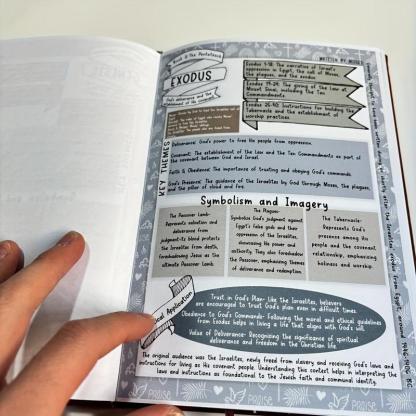 WRITTEN BY MOSES
EXODUS
God's deliverance and the
establishment of His covenant
Exodus 1-18: The narrative of Israel's
oppression in Egypt, the call of Moses,
the plagues, and the exodus
Exodus 19-24: The giving of the Law at
Mount Sinai, including the Ten
Commandments
Exodus 25-40: Instructions for building the
Tabernacle and the establishment of
worship practices
KEY THEMES
Deliverance: God's power to free His people from oppression.
Covenant: The establishment of the Law and the Ten Commandments as part of
the covenant between God and Israel.
Faith & Obedience: The importance of trusting and obeying God's commands.
God's Presence: The guidance of the Israelites by God through Moses, the plagues,
and the pillar of cloud and fire.
Symbolism and Imagery
The Passover Lamb:
Represents salvation and
deliverance from
judgment-its blood protects
the Israelites from death,
foreshadowing Jesus as the
ultimate Passover Lamb.
The Plagues:
Symbolize God's judgment against
Egypt's false gods and their
oppression of the Israelites,
showcasing His power and
authority. They also foreshadow
the Passover, emphasizing themes
of deliverance and redemption.
The Tabernacle:
Represents God's
presence among His
people and the covenant
relationship, emphasizing
holiness and worship.
Application
Trust in God's Plan- Like the Israelites, believers
are encouraged to trust God's plan even in difficult times.
Obedience to God's Commands- Following the moral and ethical guidelines
from Exodus helps in living a life that aligns with God's will.
Value of Deliverance- Recognizing the significance of spiritual
deliverance and freedom in the Christian life.
The original audience was the Israelites, newly freed from slavery and receiving God's laws and
instructions for living as His covenant people. Understanding this context helps in interpreting the
laws and instructions as foundational to the Jewish faith and communal identity.
PRAISE
PRAISE